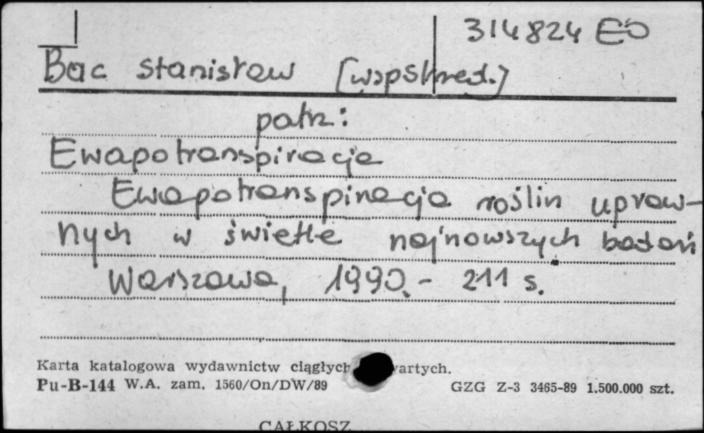 314824 EO
Bac Stanisław [wspśłred.]
patrz:
Ewapotranspiracja
Ewapotranspiracja roślin upraw-
nych w świetle najnowszych badań
Warszawa, 1990.- 211 s.
Karta katalogowa wydawnictw ciągłych wartych.
Pu-B-144 W.A. zam. 1560/On/DW/89 GZG Z-3 3465-89 1.500.000 szt.
CAŁKOSZ